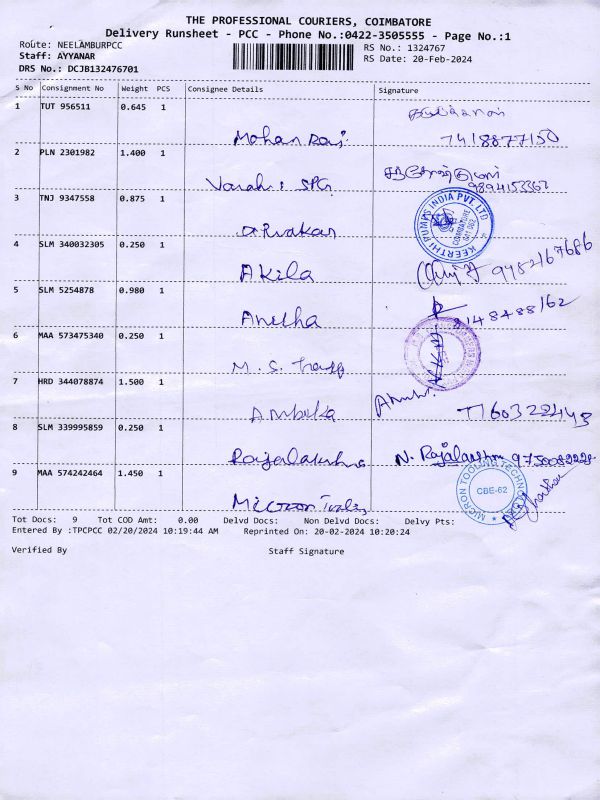 THE PROFESSIONAL COURIERS, COIMBATORE
Delivery Runsheet - PCC - Phone No.:0422-3505555 - Page No.:1
Route: NEELAMBURPCC
RS No.: 1324767
Staff: AYYANAR
RS Date: 20-Feb-2024
DRS No.: DCJB132476701
S No Consignment No Weight PCS Consignee Details Signature
1 TUT 956511 0.645 1
Mohan Raj 7418877150
2 PLN 2301982 1.400 1
9894153362
3 TNJ 9347558 0.875 1
KEERTHI PUMPS INDIA PVT. LTD
COIMBATORE
641 062
4 SLM 340032305 0.250 1
Akila 9482167686
5 SLM 5254878 0.980 1
Anitha
6 MAA 573475340 0.250 1
M. S.
7 HRD 344078874 1.500 1
Ambika
8 SLM 339995859 0.250 1
N. 9750082228
9 MAA 574242464 1.450 1
Micron Tooling
MICRON TOOLING
CBE-62
Tot Docs: 9 Tot COD Amt: 0.00 Delvd Docs: Non Delvd Docs: Delvy Pts:
Entered By :TPCPCC 02/20/2024 10:19:44 AM Reprinted On: 20-02-2024 10:20:24
Verified By Staff Signature